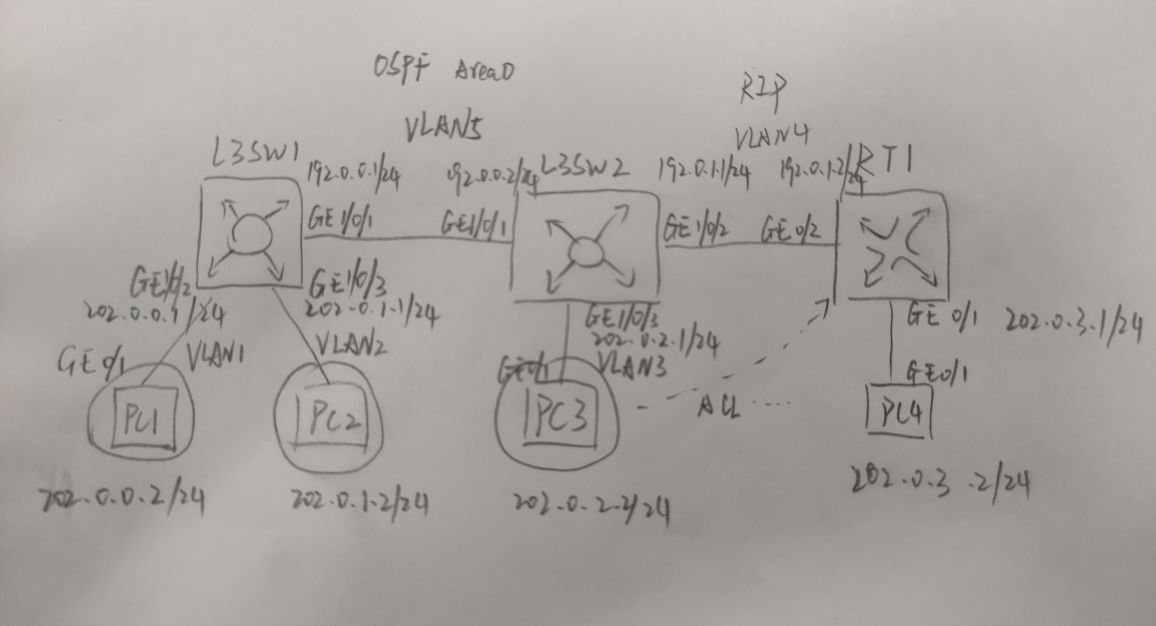 OSPF Area0
VLAN5
RIP
VLAN4
L3SW1
192.0.0.1/24
192.0.0.2/24
L3SW2
192.0.1.1/24
192.0.1.2/24
RT1
GE1/0/1
GE1/0/1
GE1/0/2
GE0/2
GE1/0/2
202.0.0.1/24
GE1/0/3
202.0.1.1/24
GE1/0/3
202.0.2.1/24
GE0/1
202.0.3.1/24
GE0/1
VLAN1
VLAN2
GE0/1
VLAN3
GE0/1
PC1
PC2
PC3
ACL
PC4
202.0.0.2/24
202.0.1.2/24
202.0.2.2/24
202.0.3.2/24